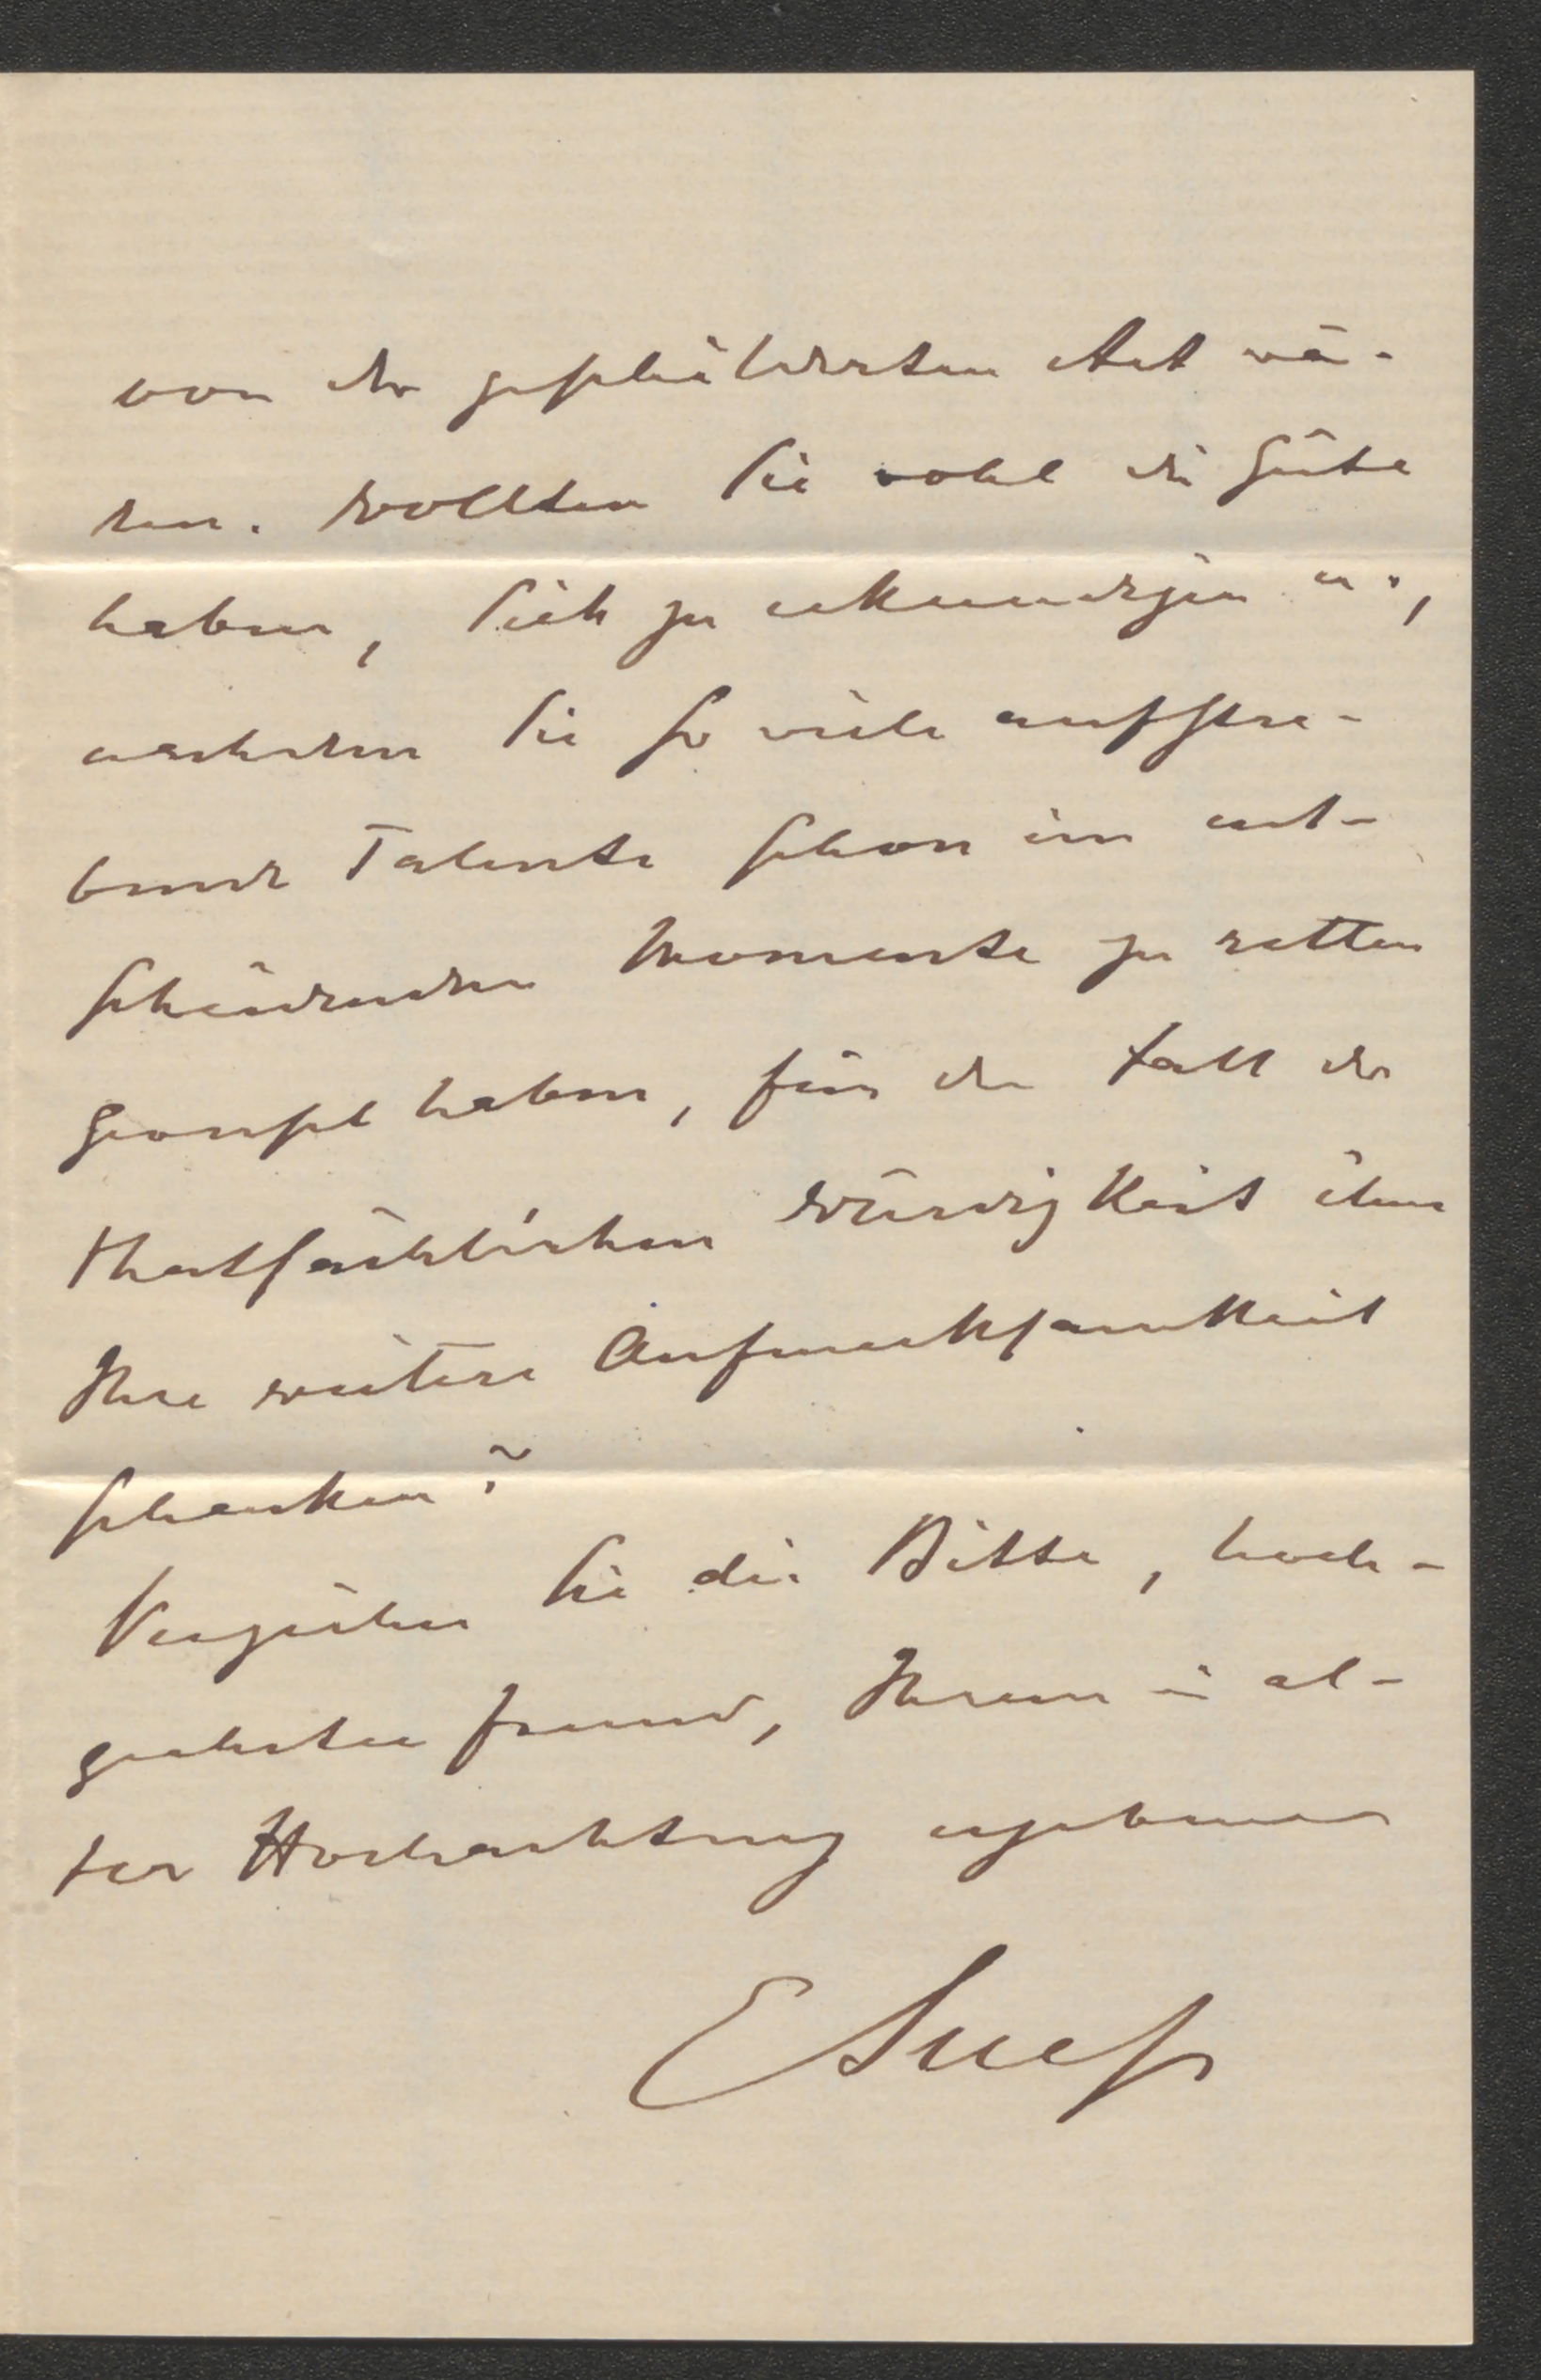 von der geschilderten Art wä-
ren. Wollten Sie wohl die Güte
haben, Sich zu erkundigen u.,
nachdem Sie so viele aufstre-
bende Talente schon im ent-
scheidenden Momente zu retten
gewußt haben, für den Fall der
thatsächlichen Würdigkeit ihm
Ihre weitere Aufmerksamkeit
schenken?
Verzeihen Sie die Bitte, hoch-
geehrter Freund, Ihrem in al-
ter Hochachtung ergebenen
ESueß